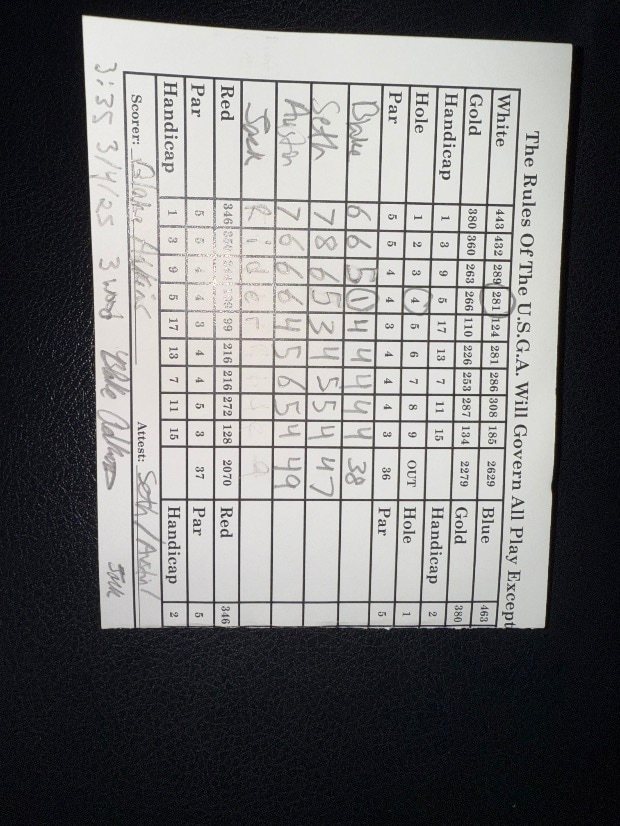 The Rules Of The U.S.G.A. Will Govern All Play Except
White 443 432 289 281 124 281 286 308 185 2629 Blue 463
Gold 380 360 263 266 110 226 253 287 134 2279 Gold 380
Handicap 1 3 9 5 17 13 7 11 15 Handicap 2
Hole 1 2 3 4 5 6 7 8 9 OUT Hole 1
Par 5 5 4 4 3 4 4 4 3 36 Par 5
Blake 6 6 5 1 4 4 4 4 4 38
Seth 7 8 6 5 3 4 5 5 4 47
Austin 7 6 6 6 4 5 6 5 4 49
Jack Rider
Red 346 99 216 216 272 128 2070 Red 346
Par 5 5 4 4 3 4 4 5 3 37 Par 5
Handicap 1 3 9 5 17 13 7 11 15 Handicap 2
Scorer: Blake Attest: Seth / Austin
3:35 3/4/25 3 wood Blake Jack